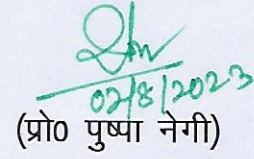 02/8/2023
(प्रो० पुष्पा नेगी)